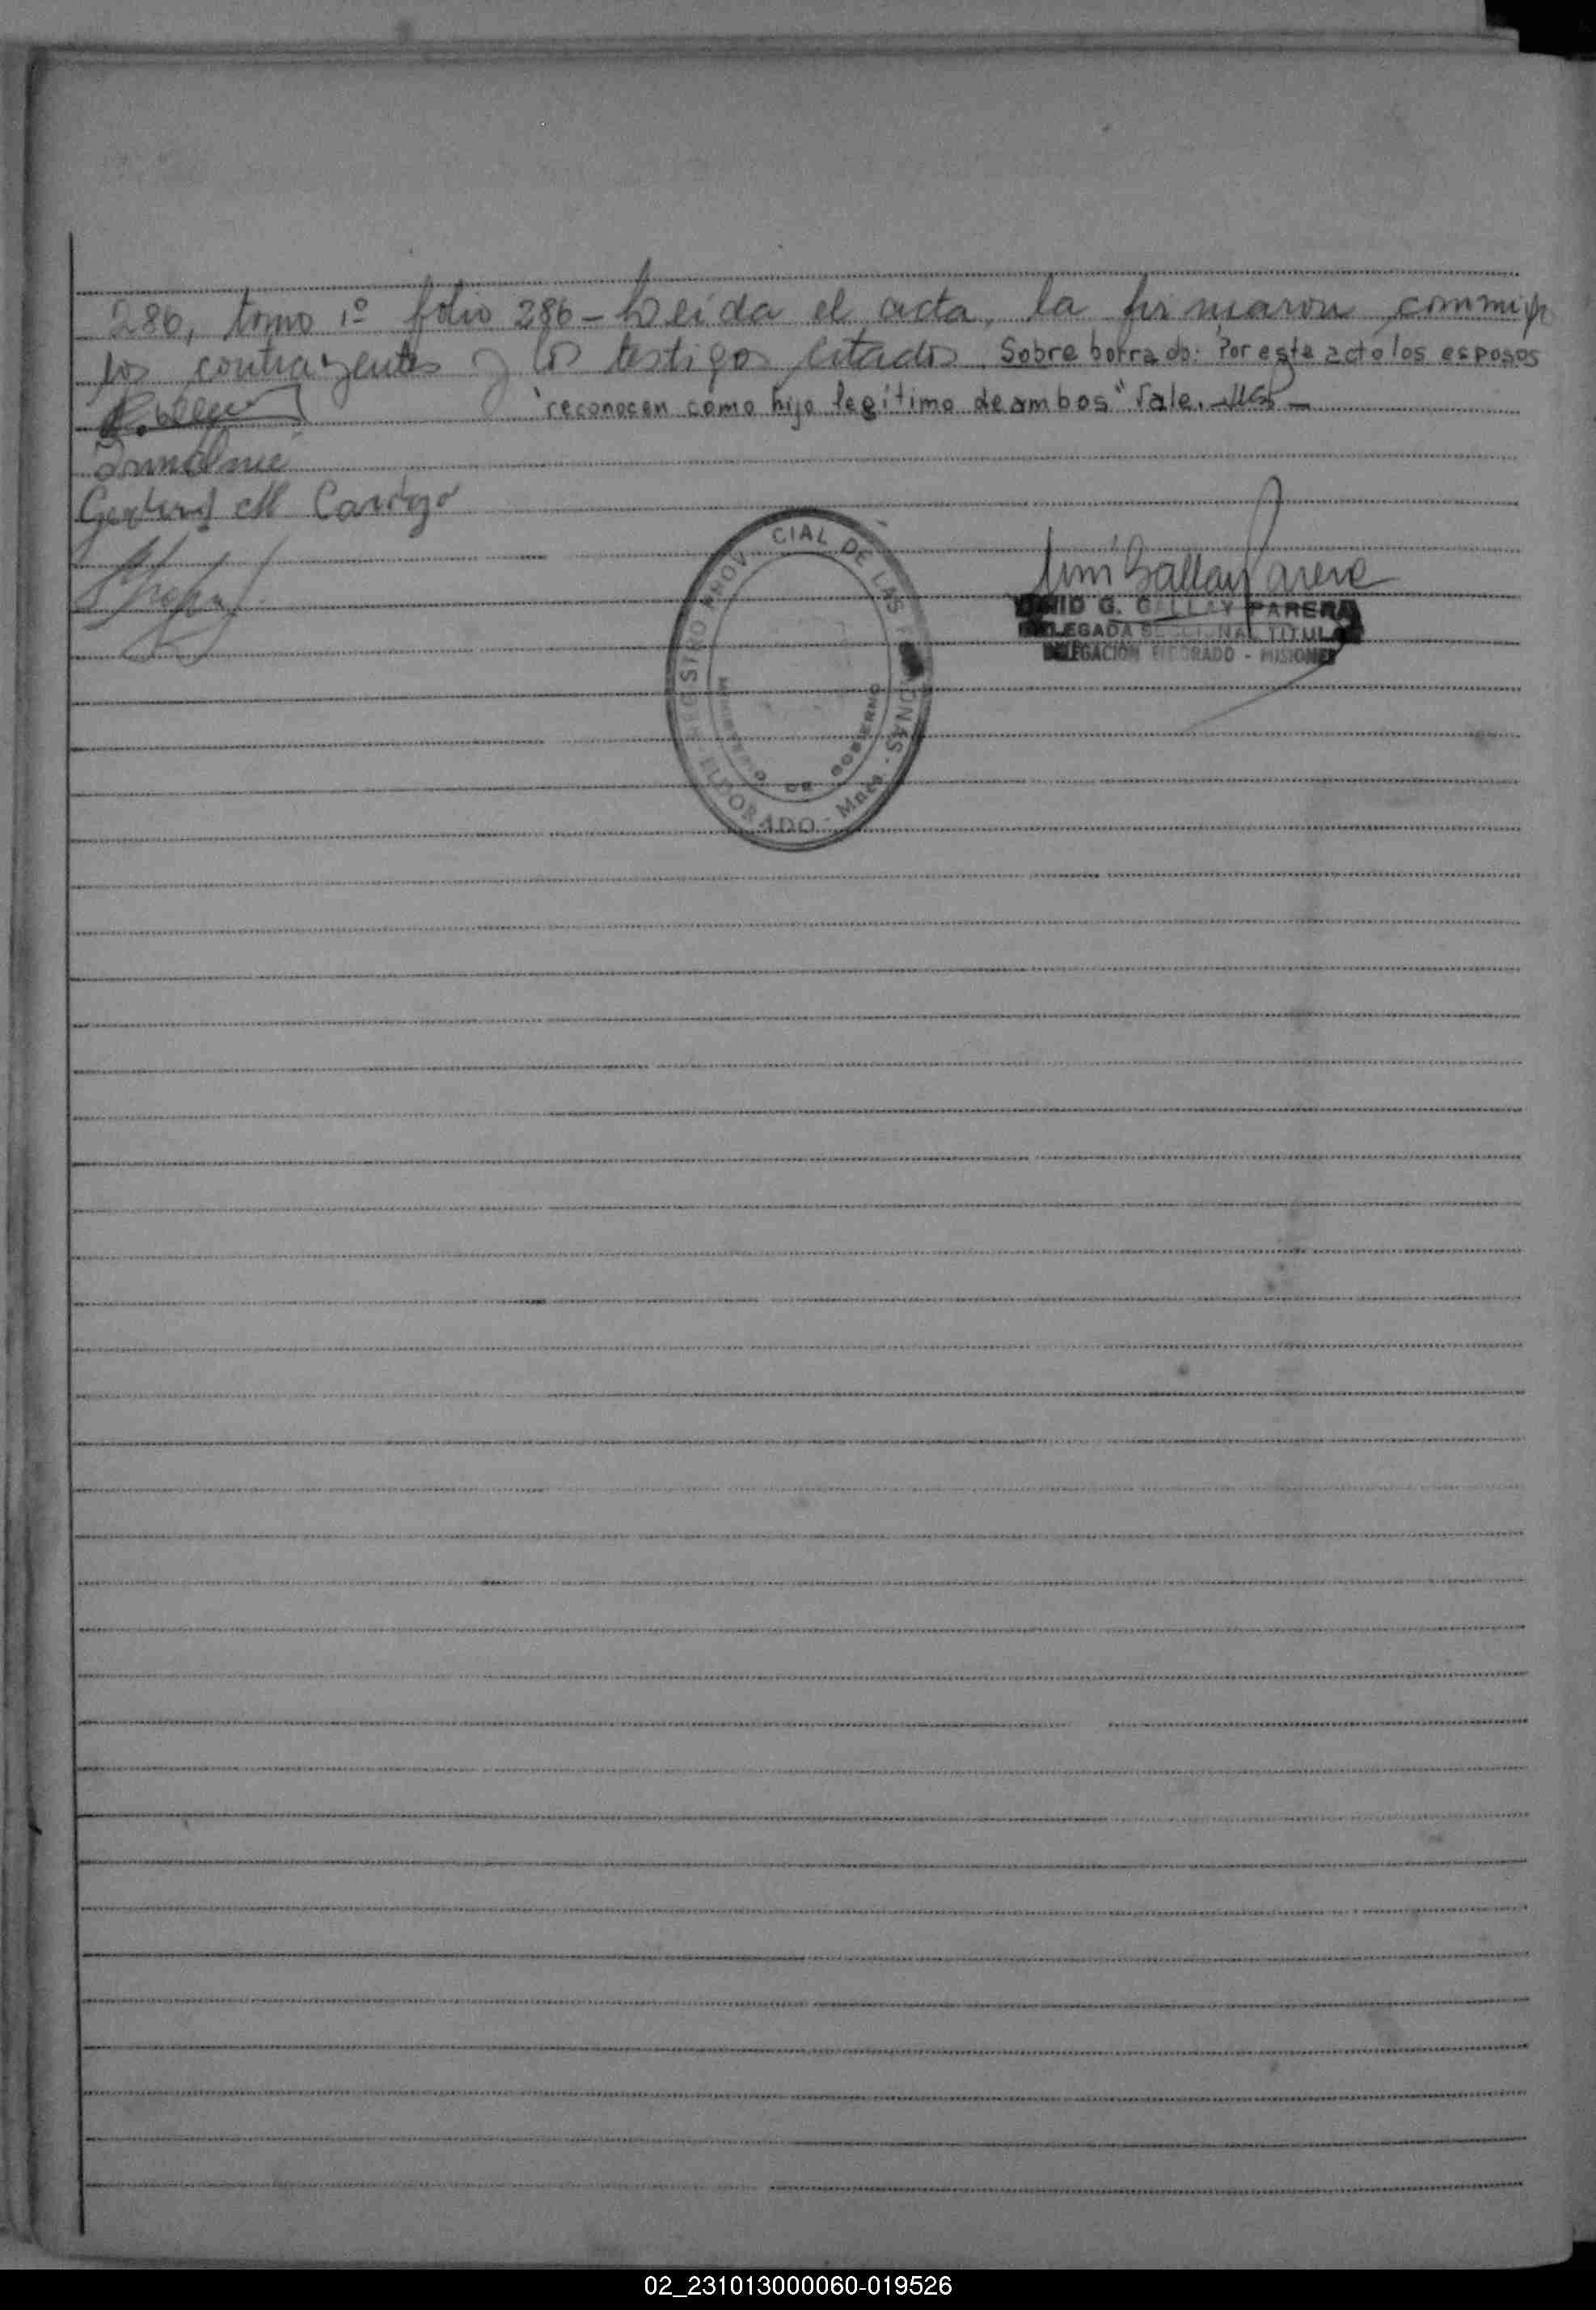 286, tomo 1º folio 286 - Leída el acta, la firmaron conmigo
los contrayentes y los testigos citados. Sobre borrado: "Por este acto los esposos
"reconocen como hijo legítimo de ambos" Vale.
Gertrud M Cardozo
REGISTRO PROVINCIAL DE LAS PERSONAS - ELDORADO - Mnes.
MINISTERIO DE GOBIERNO
G. GALLAY PARERA
DELEGADA SECCIONAL TITULAR
DELEGACION ELDORADO - MISIONES
02_231013000060-019526